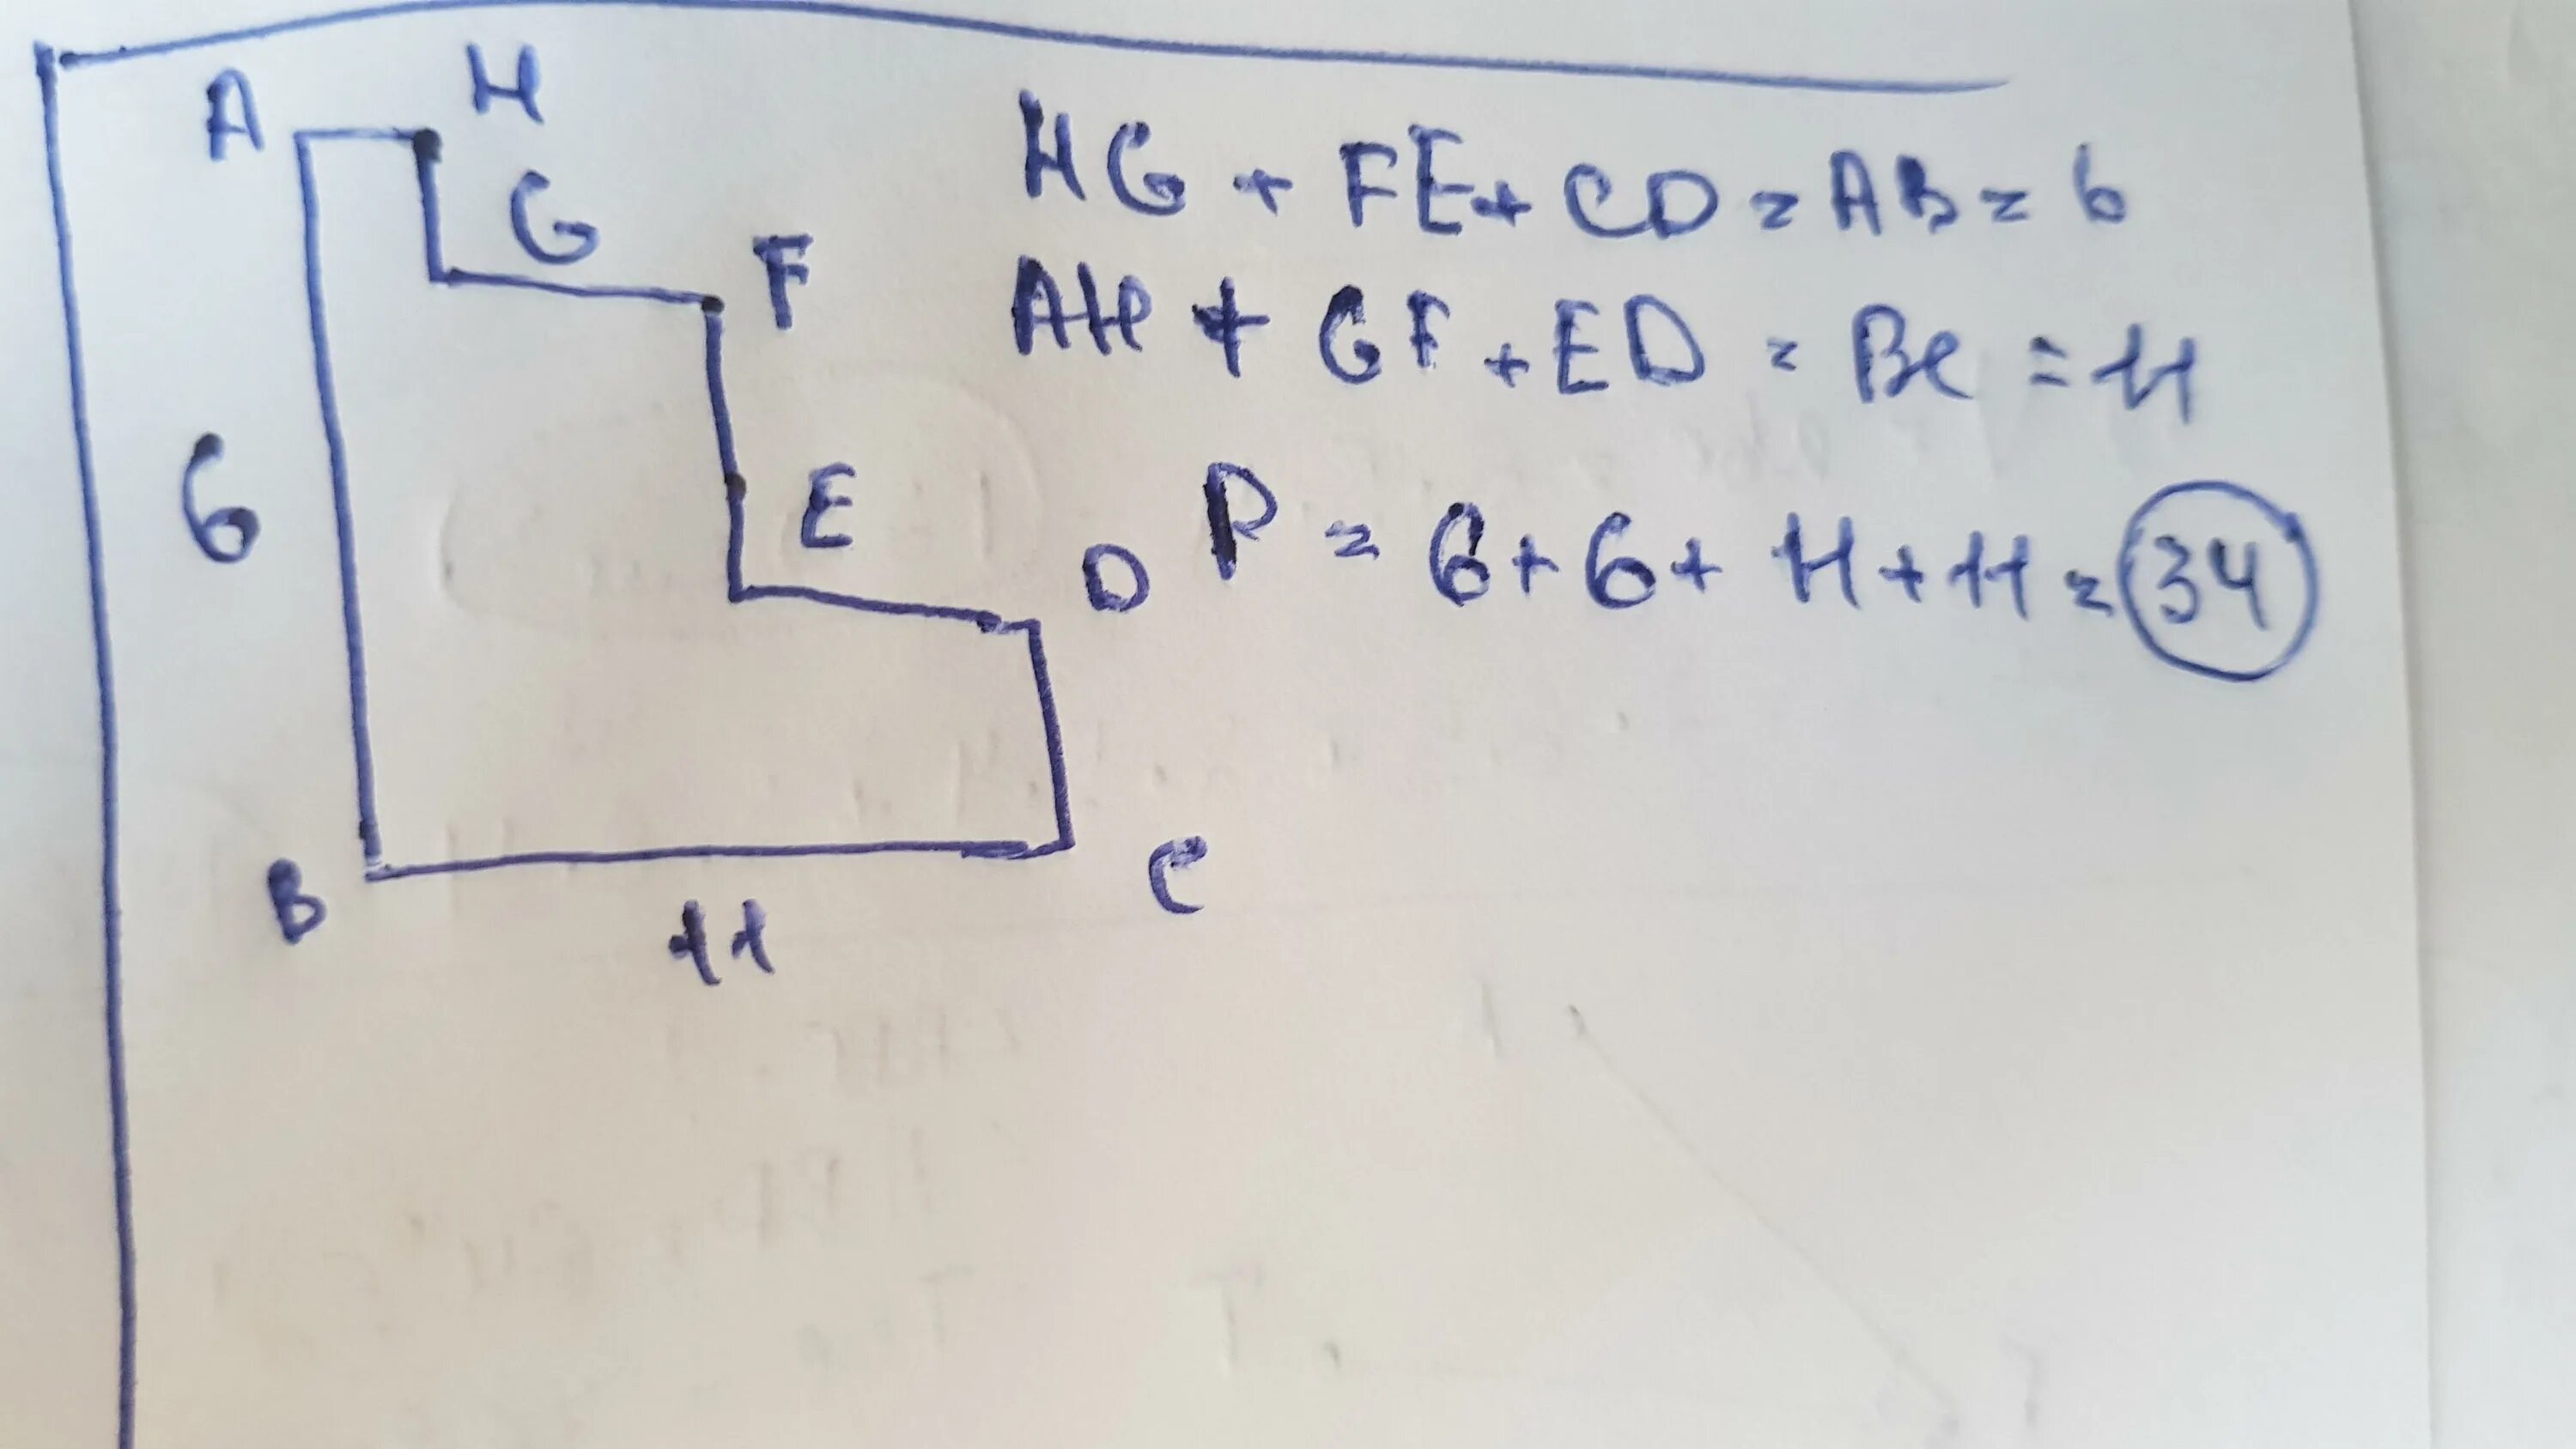 A H
G
F
6
E
D
B
C
11
HG + FE + CD = AB = 6
AH + GF + ED = BC = 11
P = 6 + 6 + 11 + 11 = 34